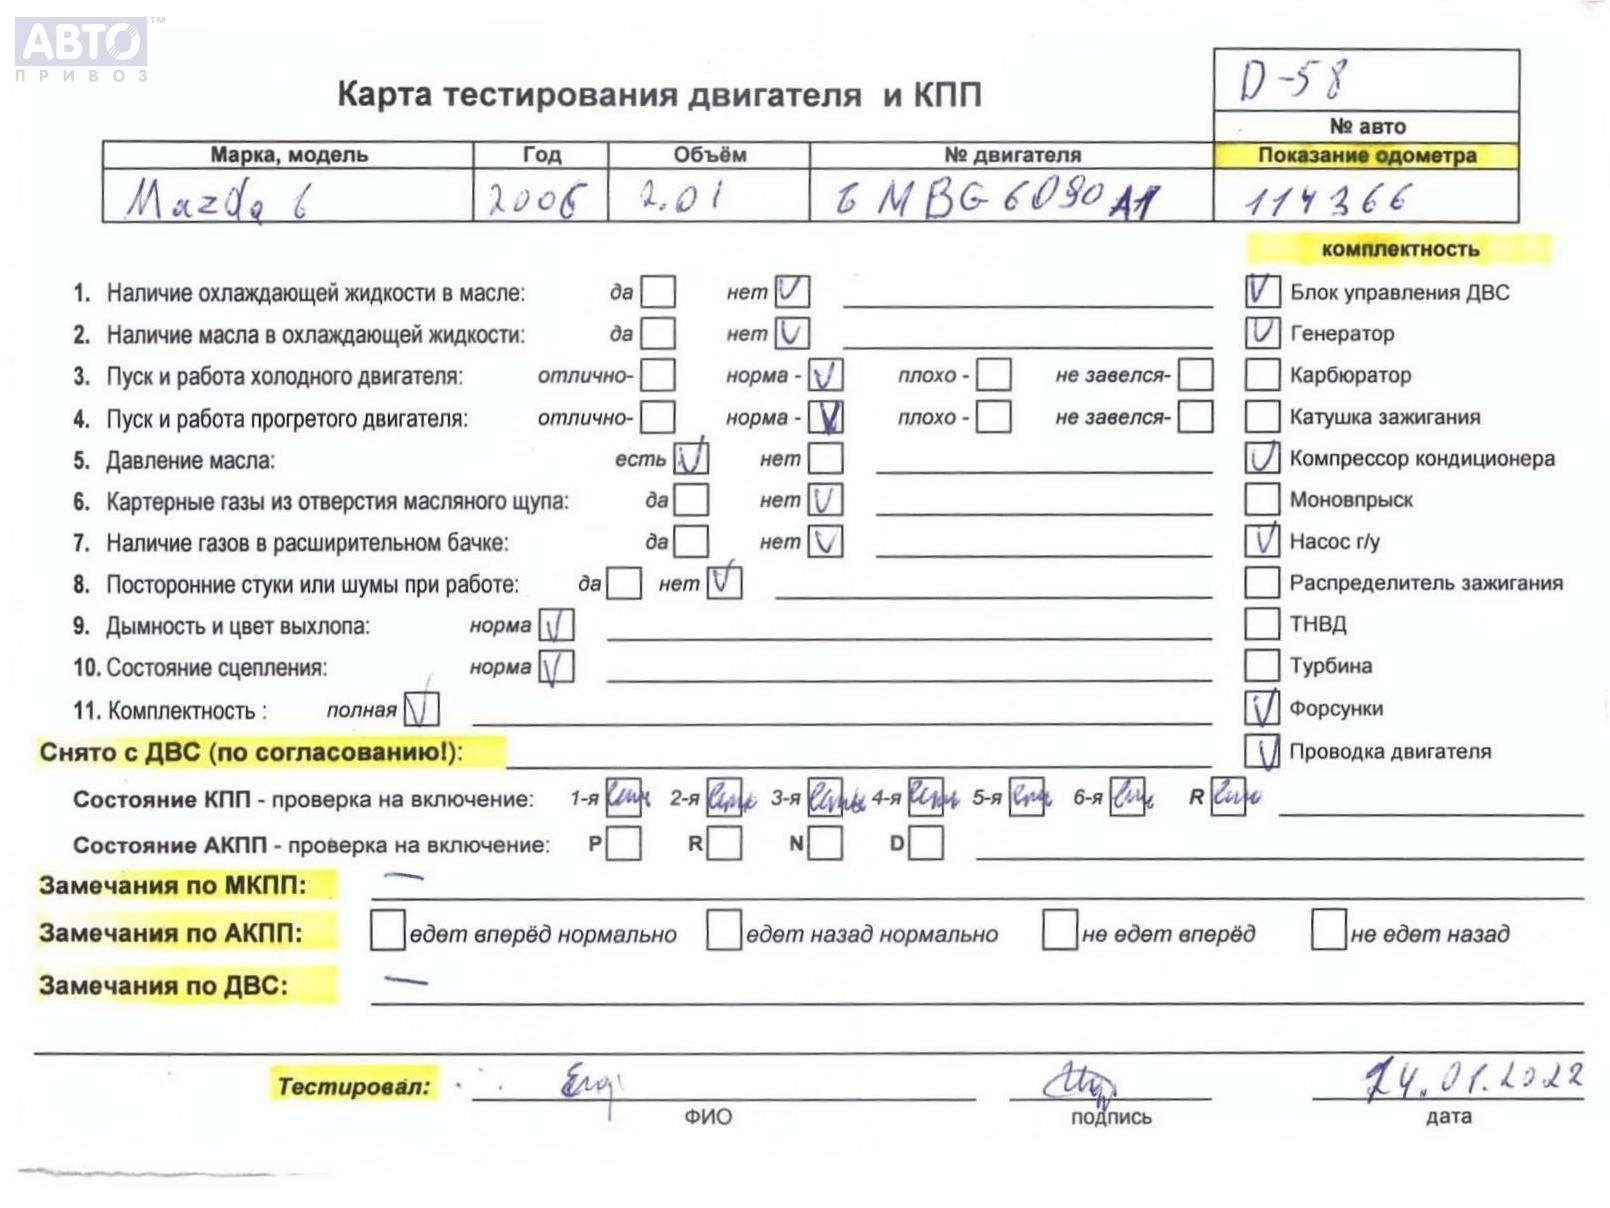 АВТО™
ПРИВОЗ
Карта тестирования двигателя и КПП
D-58
№ авто
Марка, модель Год Объём № двигателя Показание одометра
Mazda 6 2006 2.0i 6MBG6090A1 114366
комплектность
1. Наличие охлаждающей жидкости в масле: да нет V V Блок управления ДВС
2. Наличие масла в охлаждающей жидкости: да нет V V Генератор
3. Пуск и работа холодного двигателя: отлично- норма - V плохо - не завелся- Карбюратор
4. Пуск и работа прогретого двигателя: отлично- норма - V плохо - не завелся- Катушка зажигания
5. Давление масла: есть V нет V Компрессор кондиционера
6. Картерные газы из отверстия масляного щупа: да нет V Моновпрыск
7. Наличие газов в расширительном бачке: да нет V V Насос г/у
8. Посторонние стуки или шумы при работе: да нет V Распределитель зажигания
9. Дымность и цвет выхлопа: норма V ТНВД
10. Состояние сцепления: норма V Турбина
11. Комплектность : полная V V Форсунки
Снято с ДВС (по согласованию!): V Проводка двигателя
Состояние КПП - проверка на включение: 1-я есть 2-я есть 3-я есть 4-я есть 5-я есть 6-я есть R есть
Состояние АКПП - проверка на включение: P R N D
Замечания по МКПП: —
Замечания по АКПП: едет вперёд нормально едет назад нормально не едет вперёд не едет назад
Замечания по ДВС: —
Тестировал: 24.01.2022
ФИО подпись дата